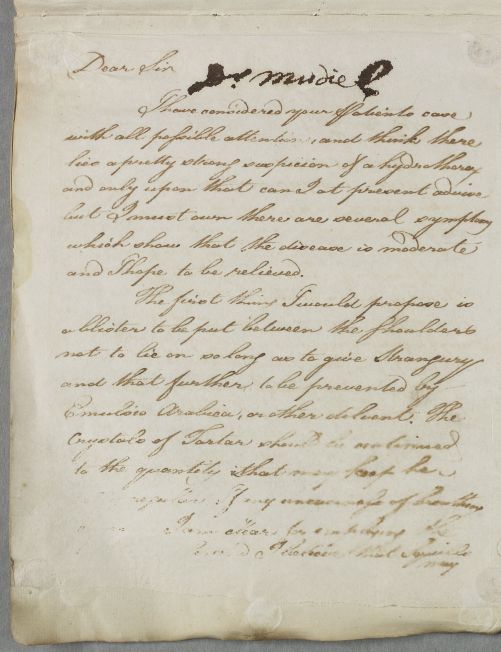 Dear Sir
Dr. Mudie
I have considered your Patients case
with all possible attention, and think there
lies a pretty strong suspicion of a hydrothorax
and only upon that can I at present advise
but I must own there are several symptoms
which show that the disease is moderate
and I hope to be relieved.
The first thing I would propose is
a blister to be put between the Shoulders
not to lie on so long as to give Strangury
and that further to be prevented by
Emulsio Arabica, or other diluent. The
Crystals of Tartar should be continued
to the quantity that may keep her
regular. If any uneasiness of breathing
I am clear for employing the
I believe that Squills
may